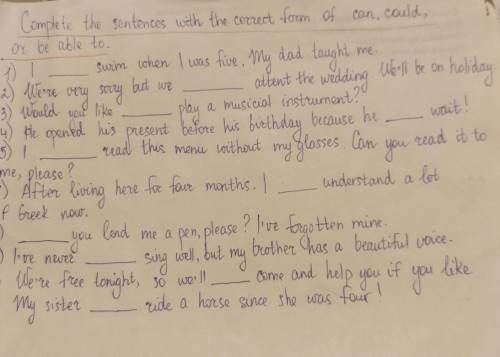 Complete the sentences with the correct form of can, could,
or be able to.
1) I ____ swim when I was five. My dad taught me.
2) We're very sorry but we ____ attent the wedding. We'll be on holiday.
3) Would you like ____ play a musicial instrument?
4) He opened his present before his birthday because he ____ wait!
5) I ____ read this menu without my glasses. Can you read it to
me, please?
) After living here for four months. I ____ understand a lot
f Greek now.
) ____ you lend me a pen, please? I've forgotten mine.
) I've never ____ sing well, but my brother has a beautiful voice.
We're free tonight, so we'll ____ come and help you if you like.
My sister ____ ride a horse since she was four!